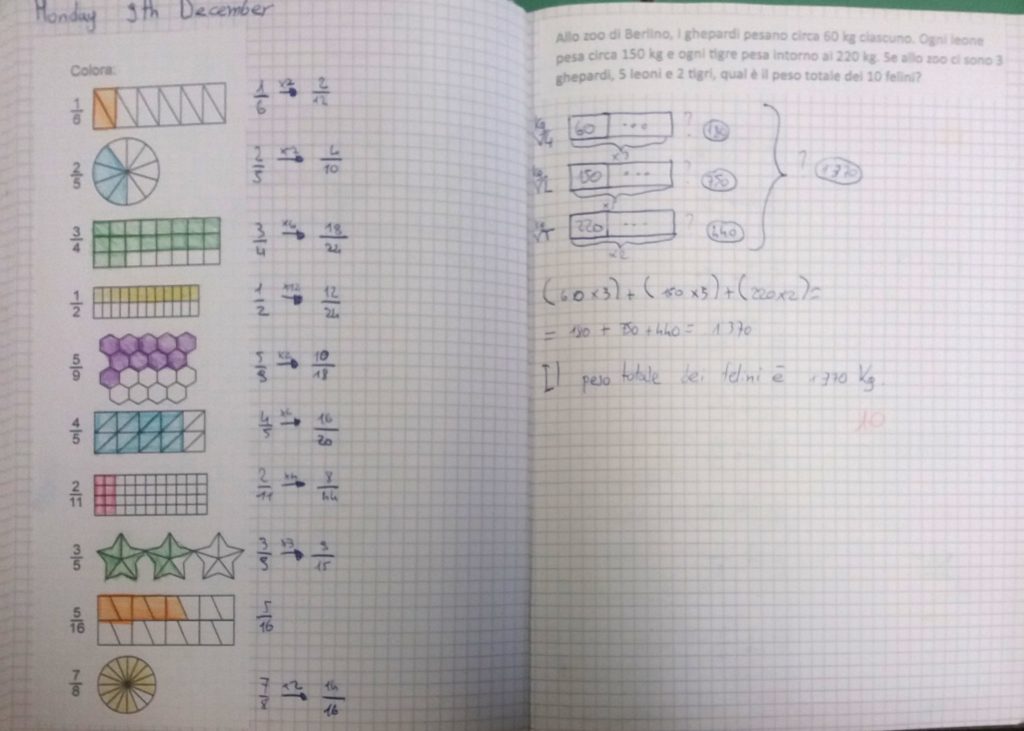 Monday 9th December
Colora:
1/6 1/6 x2 → 2/12
2/5 2/5 → 4/10
3/4 3/4 x6 → 18/24
1/2 1/2 x12 → 12/24
5/9 5/9 x2 → 10/18
4/5 4/5 → 16/20
2/11 2/11 x4 → 8/44
3/5 3/5 x3 → 9/15
5/16 5/16
7/8 7/8 x2 → 14/16
Allo zoo di Berlino, i ghepardi pesano circa 60 kg ciascuno. Ogni leone
pesa circa 150 kg e ogni tigre pesa intorno ai 220 kg. Se allo zoo ci sono 3
ghepardi, 5 leoni e 2 tigri, qual è il peso totale dei 10 felini?
60 ... ? 180
x3
150 ... ? 750
220 ... ? 440
x2
? 1370
(60x3) + (150x5) + (220x2) =
= 180 + 750 + 440 = 1370
Il peso totale dei felini è 1370 Kg.
10